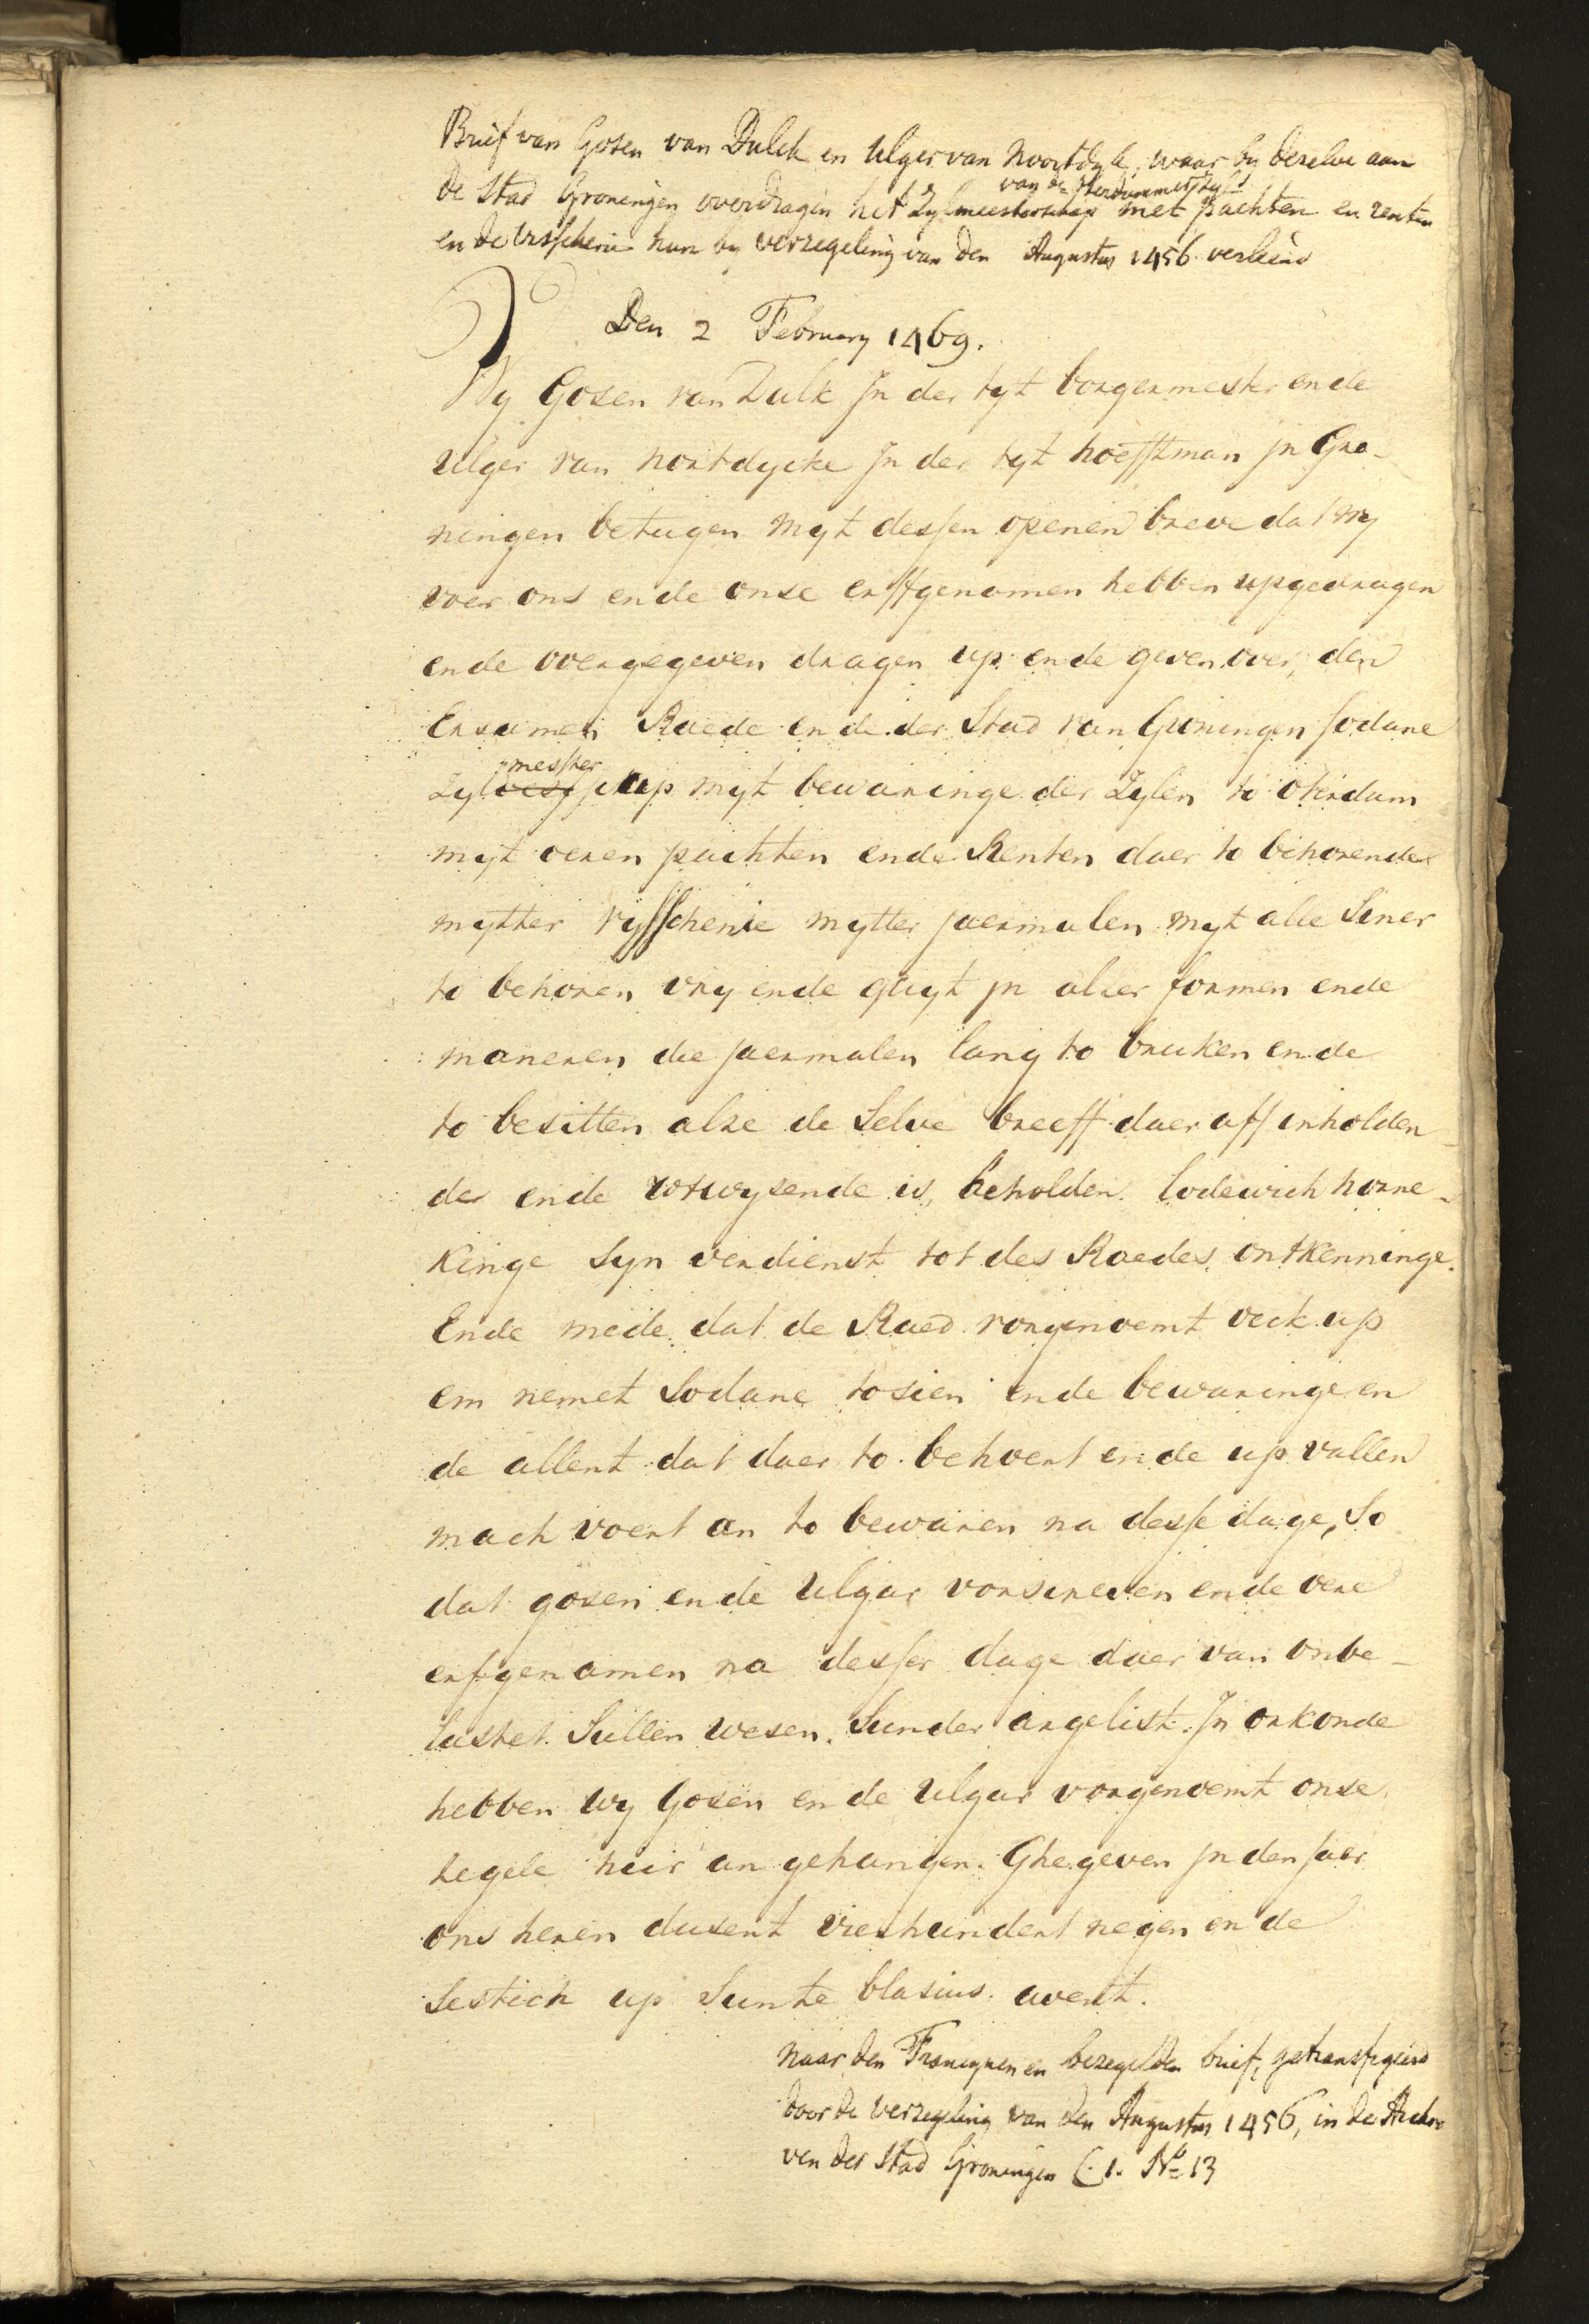 Brief van Gosen van Dulck en Ulger van Noortdyk, waar by dezelve aan
de Stad Groningen overdragen het Zylmeesterschap van de Oterdummerzyl met pachten en renten
en de visscherie hun by verzegeling van den Augustus 1456 verleend
Den 2 February 1469.
Wy Gosen van Dulk Jn der tyt borgermester ende
Ulger van nortdycke Jn der tyt hoefftman jn Gro-
ningen betugen myt dessen openen breve dat wy
voer ons ende onse erffgenamen hebben upgedragen
ende overgegeven dragen up ende geven over, den
Ersamen Raede ende der Stad van Groningen sodane
Zylmesterschap myt bewaringe der Zylen to Oterdam
myt oeren pachten ende Renten daer to behorende
mytter vysscherie mytter jaermalen myt alle Siner
to behoren vry ende quyt jn alser formen ende
maneren die jaermalen lang to bruken ende
to besitten alse de Selve breeff daer aff inholden-
de ende utwysende is, beholden lodewich horne-
kinge Syn verdienst tot des Raedes ontkenninge.
Ende mede dat de Raed vorgenoemt oeck up
em nemet Sodane tosien ende bewaringe en
de allent dat daer to behoert ende up vallen
mach voert an to bewaren na desse dage, So
dat gosen ende Ulger vorscreven ende oere
erfgenamen na desser dage daer van onbe-
lastet Sullen wesen. Sunder argelist. Jn orkonde
hebben wy Gosen ende Ulger vorgenoemt onse
segele heir an gehangen. Ghegeven jn den jaer
ons heren dusent vierhundert negen ende
Sestich up Sunte blasius avent.
Naar den Francynen en bezegelden brief, getransfigeerd
door de verzegeling van den Augustus 1456, in de Archi
ven der Stad Groningen C. 1. No 13